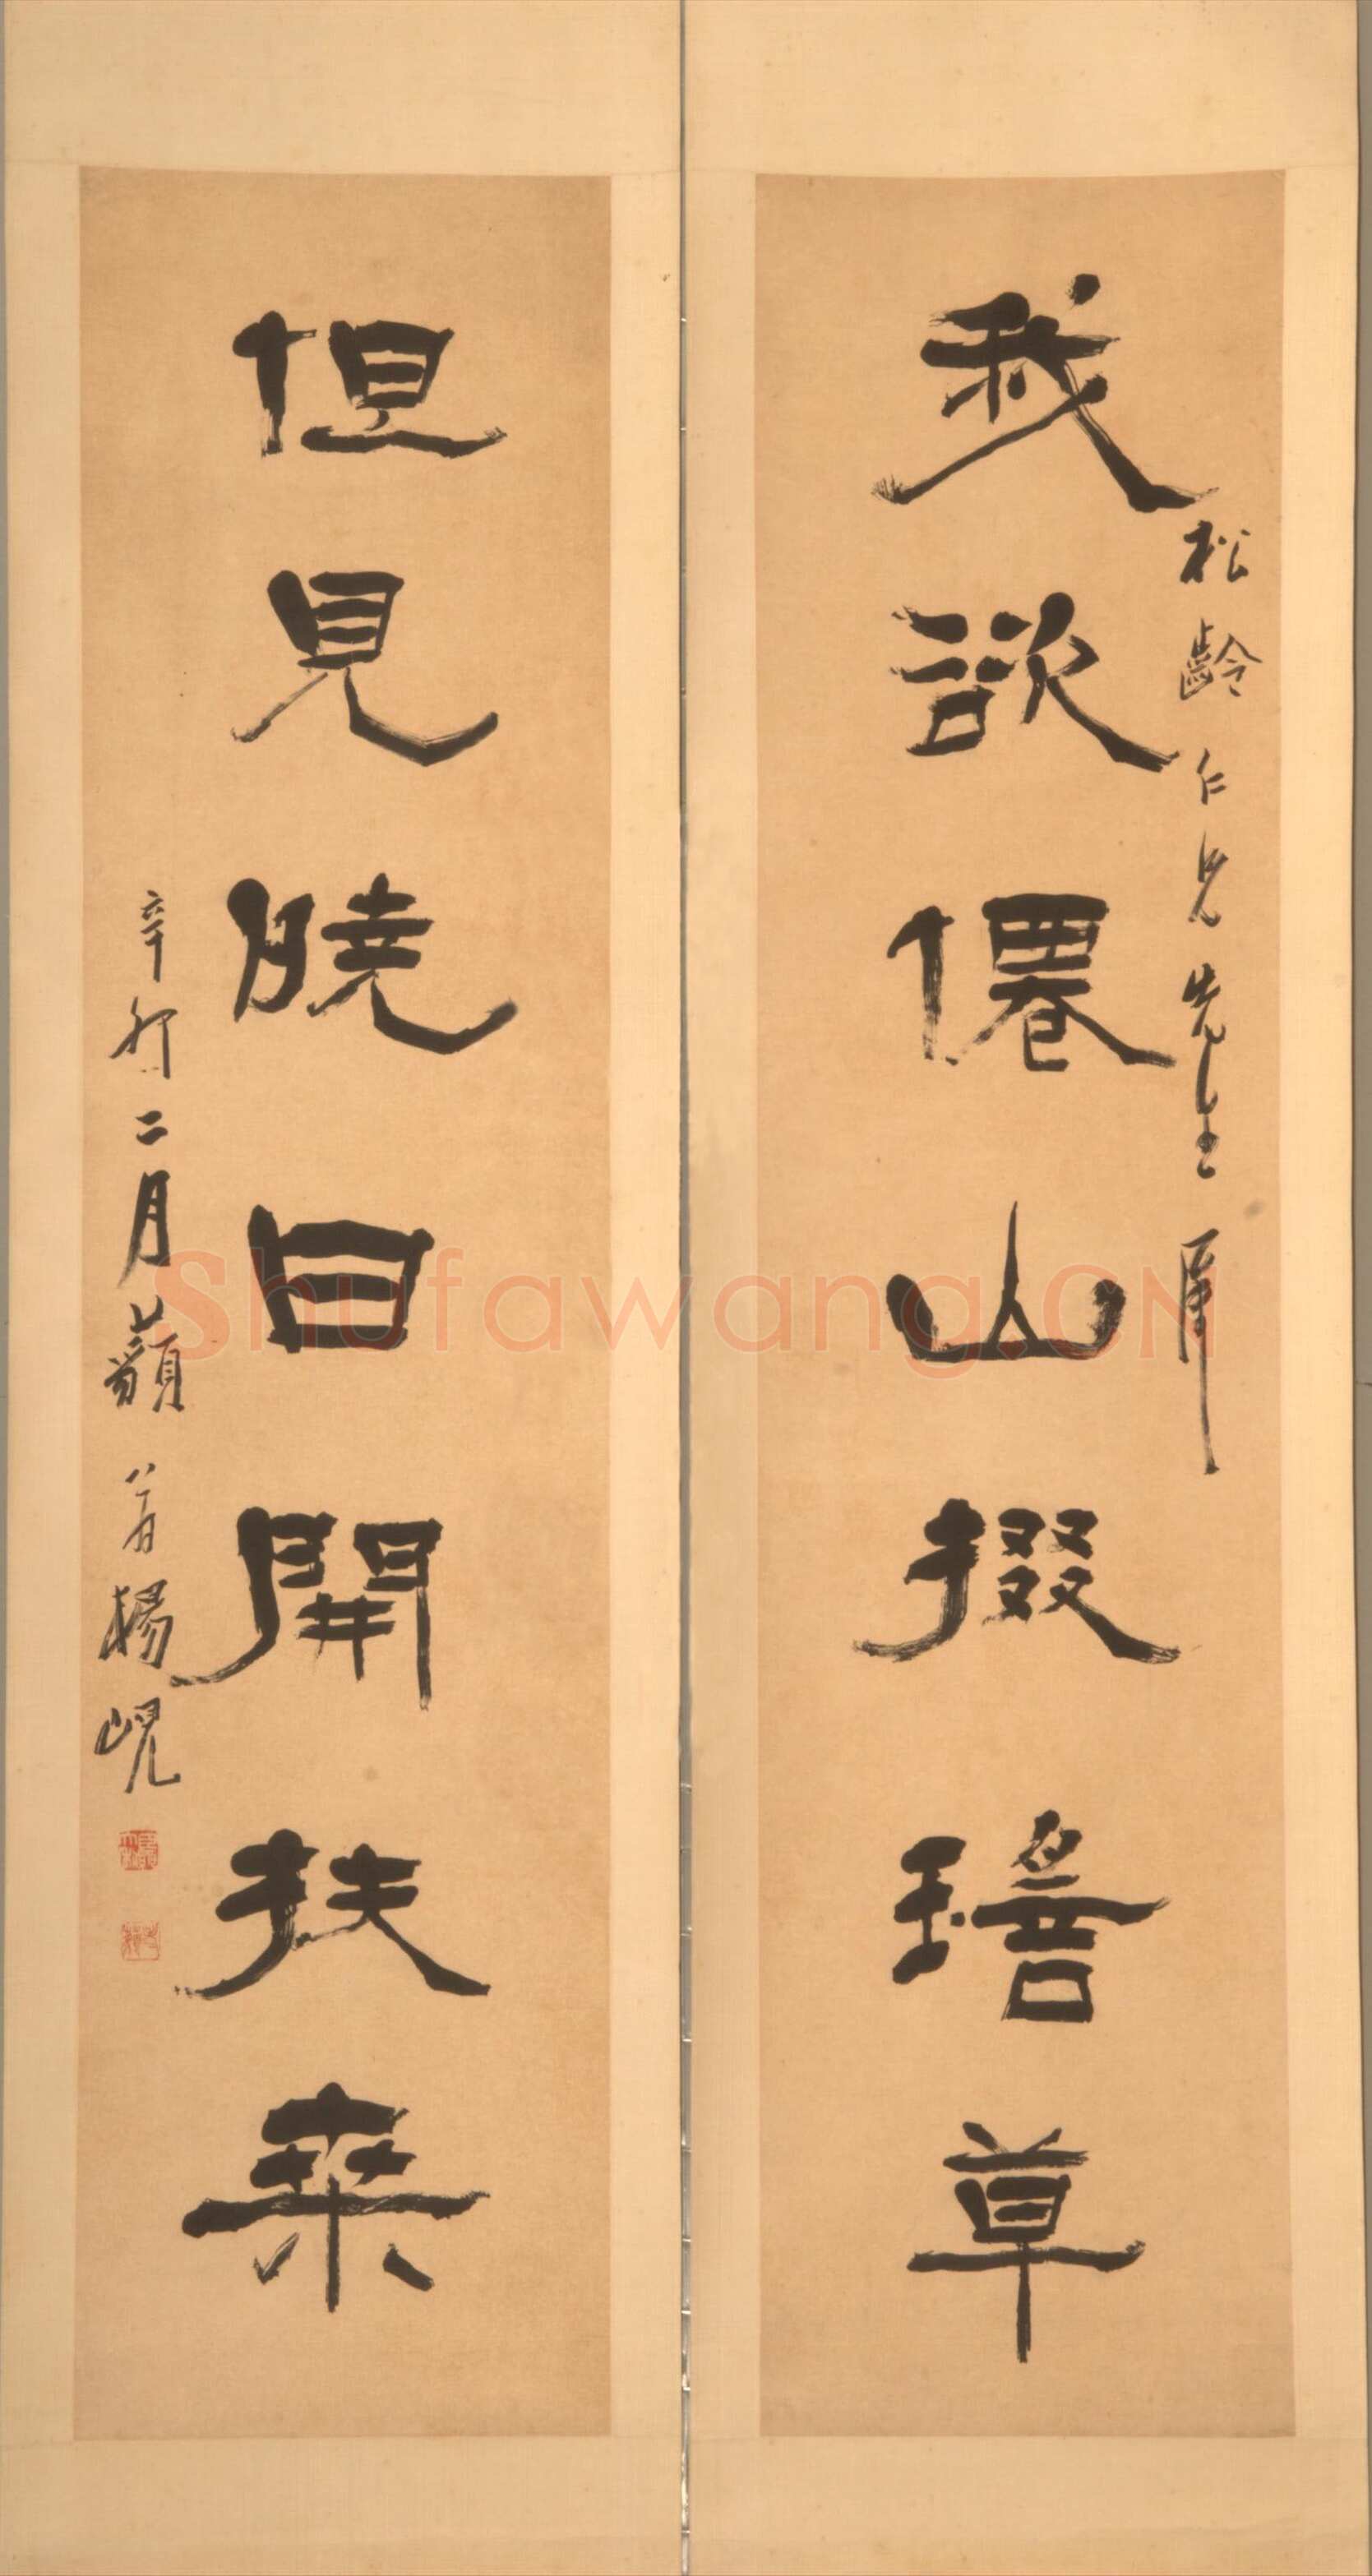 松齡仁兄先生属
我欲僊山掇瑤草
但見曉日開扶桒
辛卯二月藐翁楊峴
Shufawang.CN